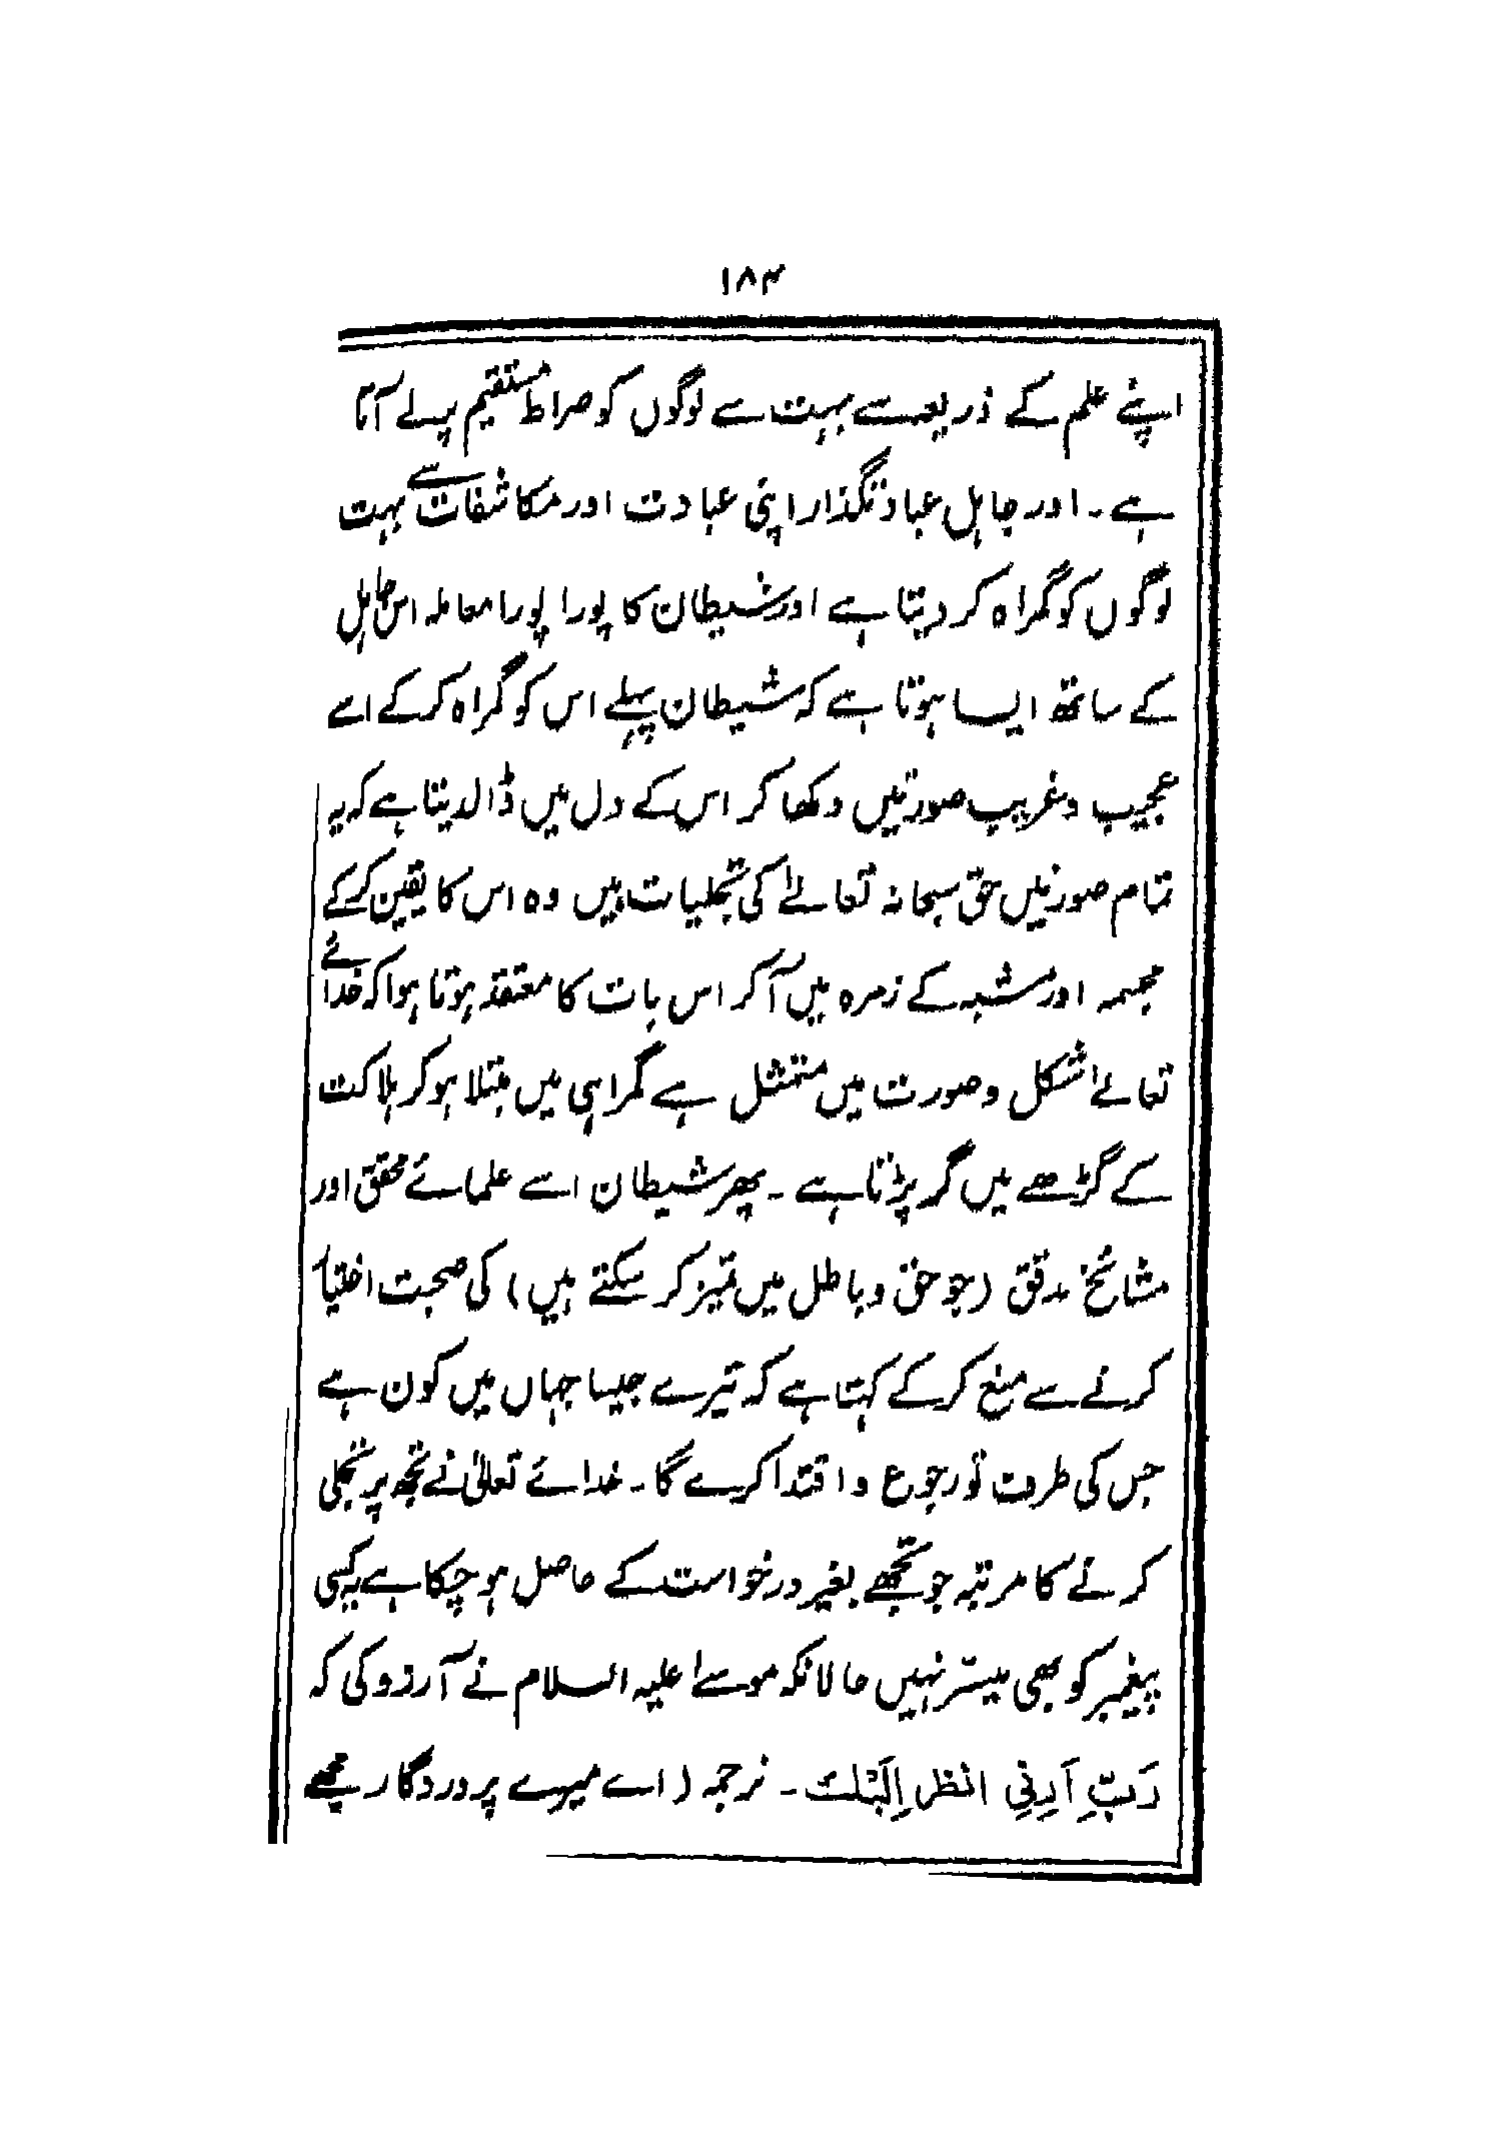 ۱۸۴
اپنے علم کے ذریعہ سے بہت سے لوگوں کو صراط مستقیم پہ لے آتا
ہے۔ اور جاہل عبادتگذار اپنی عبادت اور مکاشفات سے بہت
لوگوں کو گمراہ کر دیتا ہے اور شیطان کا پورا پورا معاملہ اس جاہل
کے ساتھ ایسا ہوتا ہے کہ شیطان پہلے اس کو گمراہ کر کے اسے
عجیب و غریب صورتیں دکھا کر اس کے دل میں ڈالدیتا ہے کہ یہ
تمام صورتیں حق سبحانہ تعالےٰ کی تجلیات ہیں وہ اس کا یقین کر کے
مجسمہ اور مشبہ کے زمرہ میں آ کر اس بات کا معتقد ہوتا ہوا کہ خدائے
تعالےٰ شکل و صورت میں متمثل ہے گمراہی میں مبتلا ہو کر ہلاکت
کے گڑھے میں گر پڑتا ہے۔ پھر شیطان اسے علمائے محقق اور
مشائخ مدقق (جو حق و باطل میں تمیز کر سکتے ہیں) کی صحبت اختیار
کرنے سے منع کر کے کہتا ہے کہ تیرے جیسا جہاں میں کون ہے
جس کی طرف تو رجوع و اقتدا کرے گا۔ خدائے تعالیٰ نے تجھ پر تجلی
کرنے کا مرتبہ جو تجھے بغیر درخواست کے حاصل ہو چکا ہے یہ کسی
پیغمبر کو بھی میسّر نہیں حالانکہ موسےٰ علیہ السلام نے آرزو کی کہ
رَبِّ اَرِنِی انظر اِلَیْک۔ ترجمہ (اے میرے پروردگار مجھے